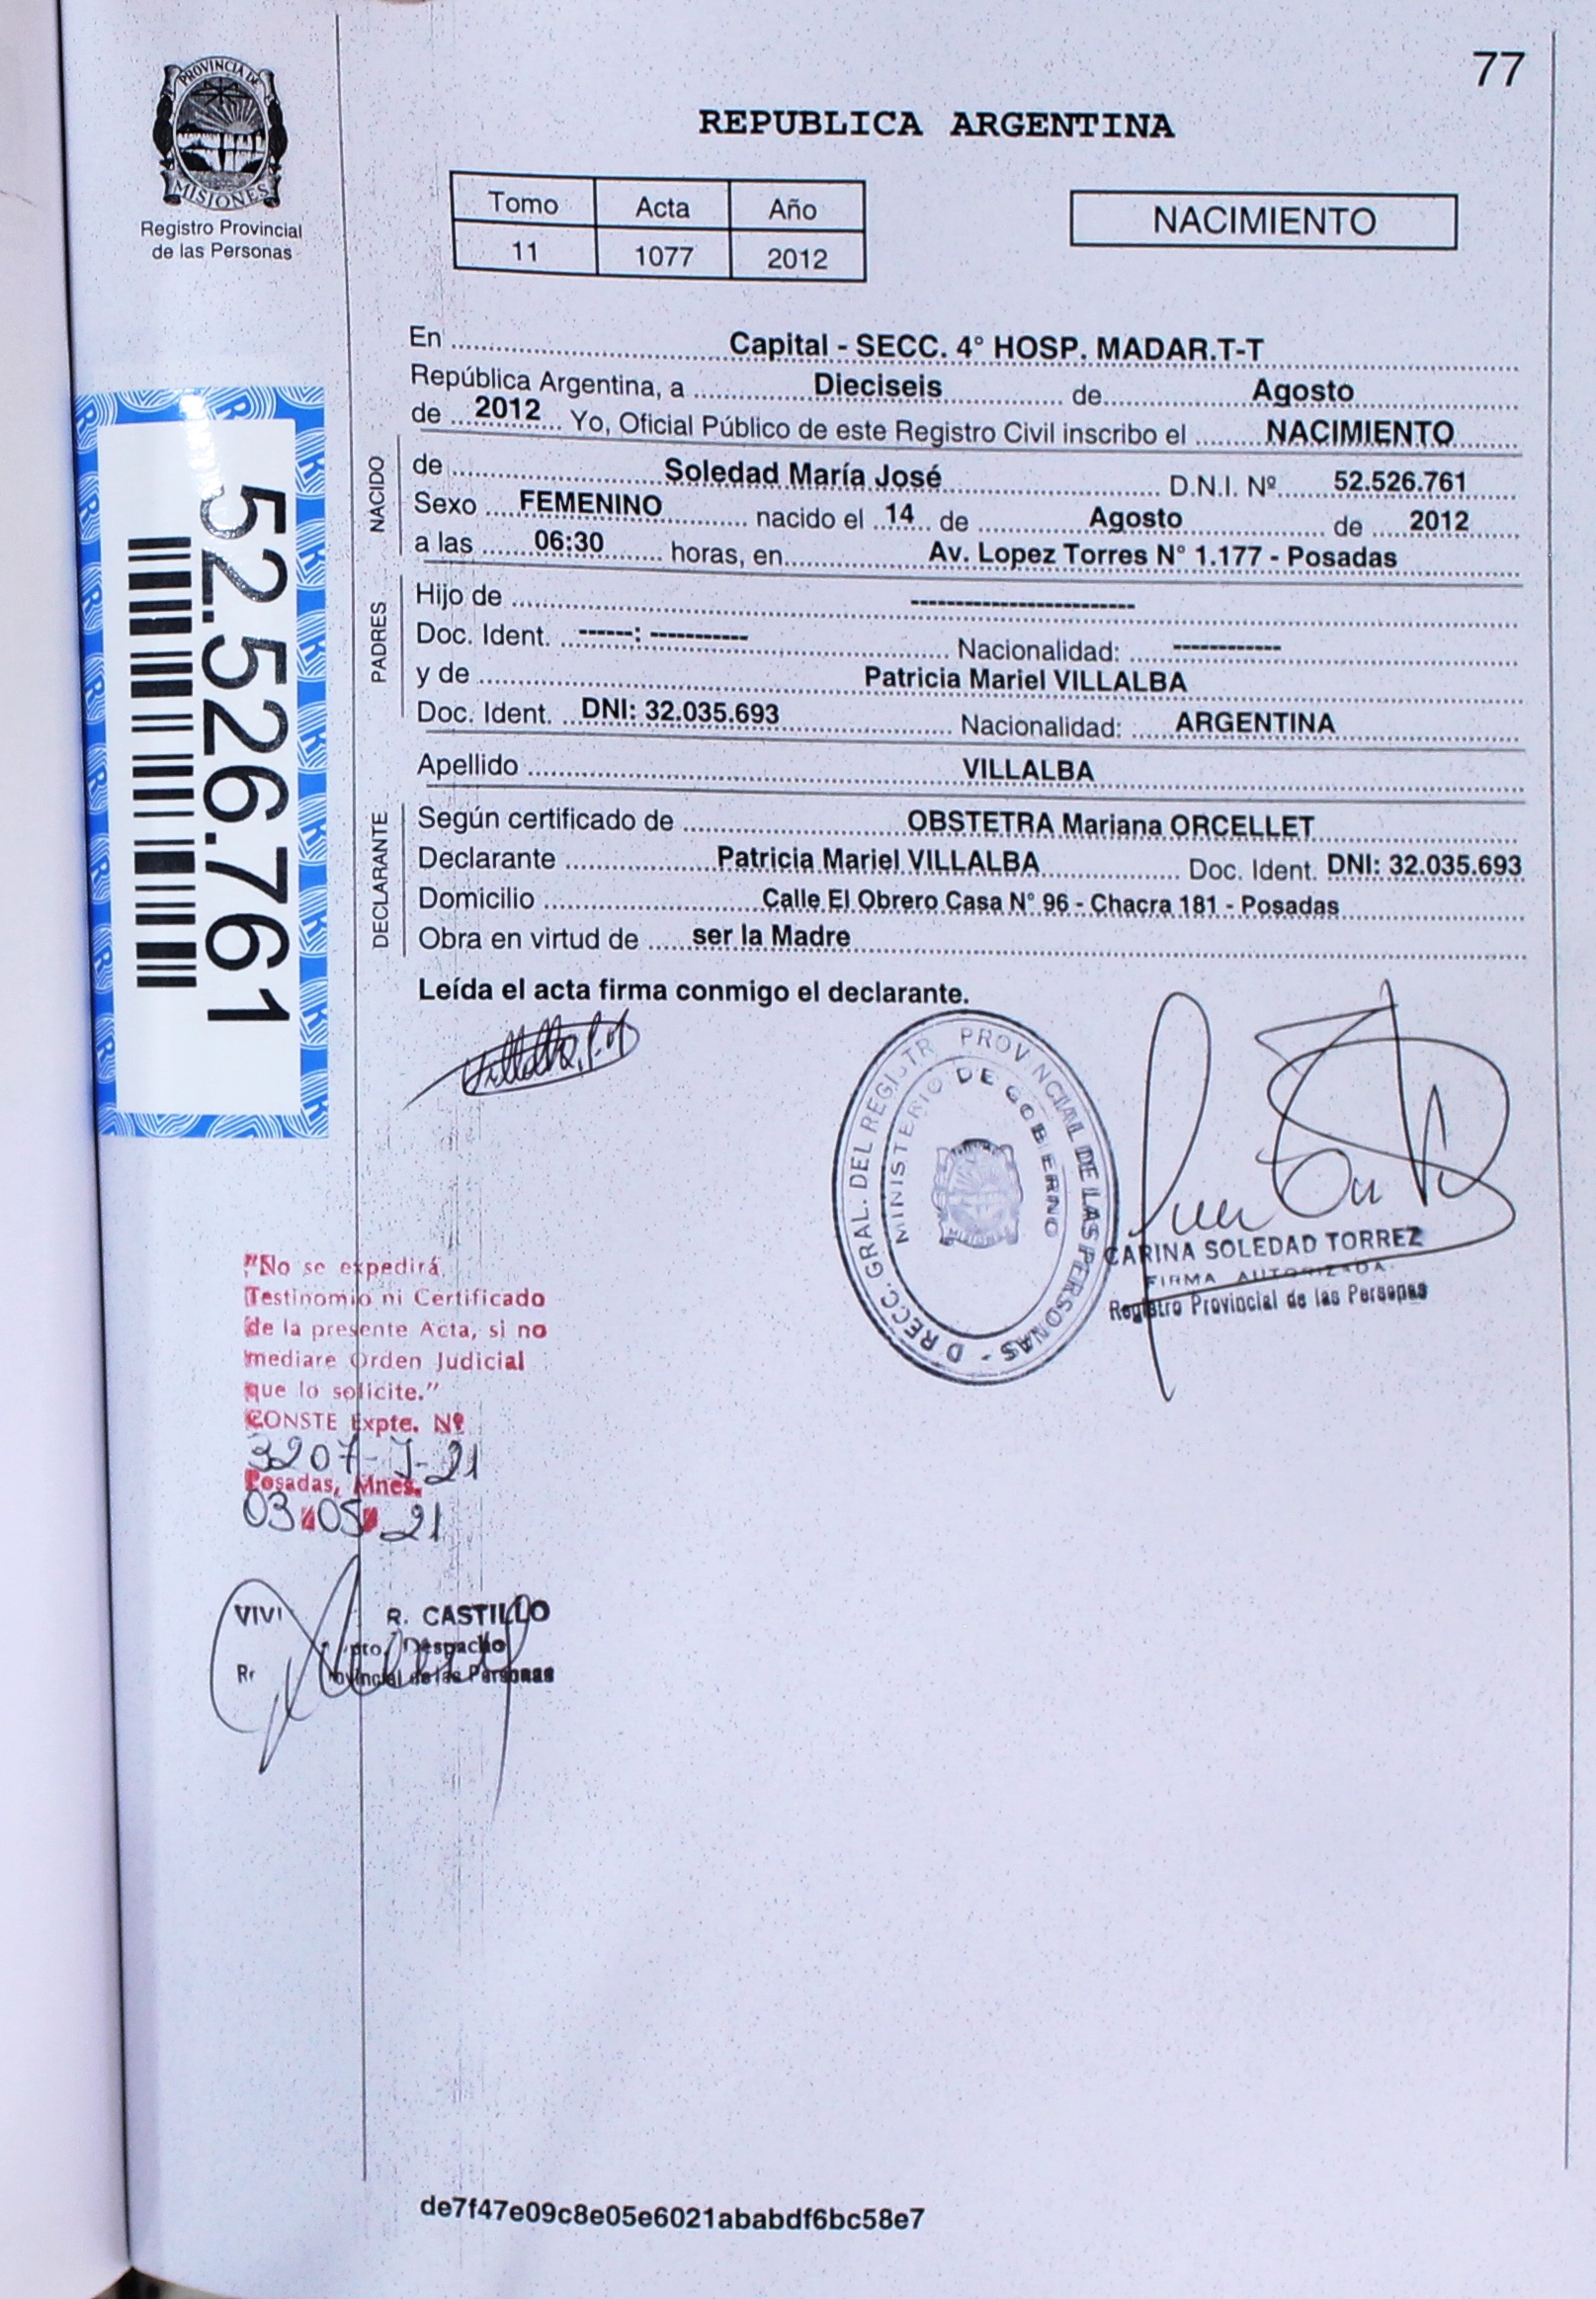 77
PROVINCIA DE
MISIONES
Registro Provincial
de las Personas
REPUBLICA ARGENTINA
Tomo Acta Año
11 1077 2012
NACIMIENTO
En Capital - SECC. 4° HOSP. MADAR.T-T
República Argentina, a Dieciseis de Agosto
de 2012 Yo, Oficial Público de este Registro Civil inscribo el NACIMIENTO
NACIDO
de Soledad María José D.N.I. Nº 52.526.761
Sexo FEMENINO nacido el 14 de Agosto de 2012
a las 06:30 horas, en Av. Lopez Torres N° 1.177 - Posadas
PADRES
Hijo de ------------------------
Doc. Ident. ------: ----------- Nacionalidad: ------------
y de Patricia Mariel VILLALBA
Doc. Ident. DNI: 32.035.693 Nacionalidad: ARGENTINA
Apellido VILLALBA
DECLARANTE
Según certificado de OBSTETRA Mariana ORCELLET
Declarante Patricia Mariel VILLALBA Doc. Ident. DNI: 32.035.693
Domicilio Calle El Obrero Casa N° 96 - Chacra 181 - Posadas
Obra en virtud de ser la Madre
Leída el acta firma conmigo el declarante.
52.526.761
Villalba, P.M
D RECC. GRAL. DEL REGISTR PROVINCIAL DE LAS PERSONAS -
MINISTERIO DE GOBIERNO
MISIONES
CARINA SOLEDAD TORREZ
FIRMA AUTORIZADA
Registro Provincial de las Personas
"No se expedirá
Testinomio ni Certificado
de la presente Acta, si no
mediare Orden Judicial
que lo solicite."
CONSTE Expte. Nº
3207-J-21
Posadas, Mnes.
03 05 21
VIVI R. CASTILLO
pto. Despacho
R ovincial de las Personas
de7f47e09c8e05e6021ababdf6bc58e7